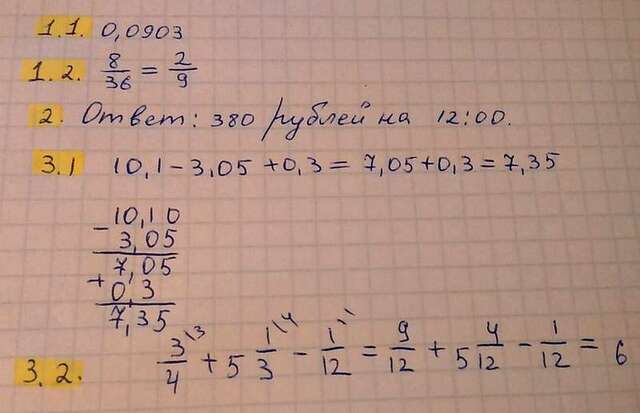 1.1. 0,0903
1.2. 8/36 = 2/9
2. Ответ: 380 рублей на 12:00.
3.1 10,1 - 3,05 + 0,3 = 7,05 + 0,3 = 7,35
- 10,10
3,05
7,05
+ 0,3
7,35
3.2. 3\3/4 + 5 1\4/3 - 1\1/12 = 9/12 + 5 4/12 - 1/12 = 6